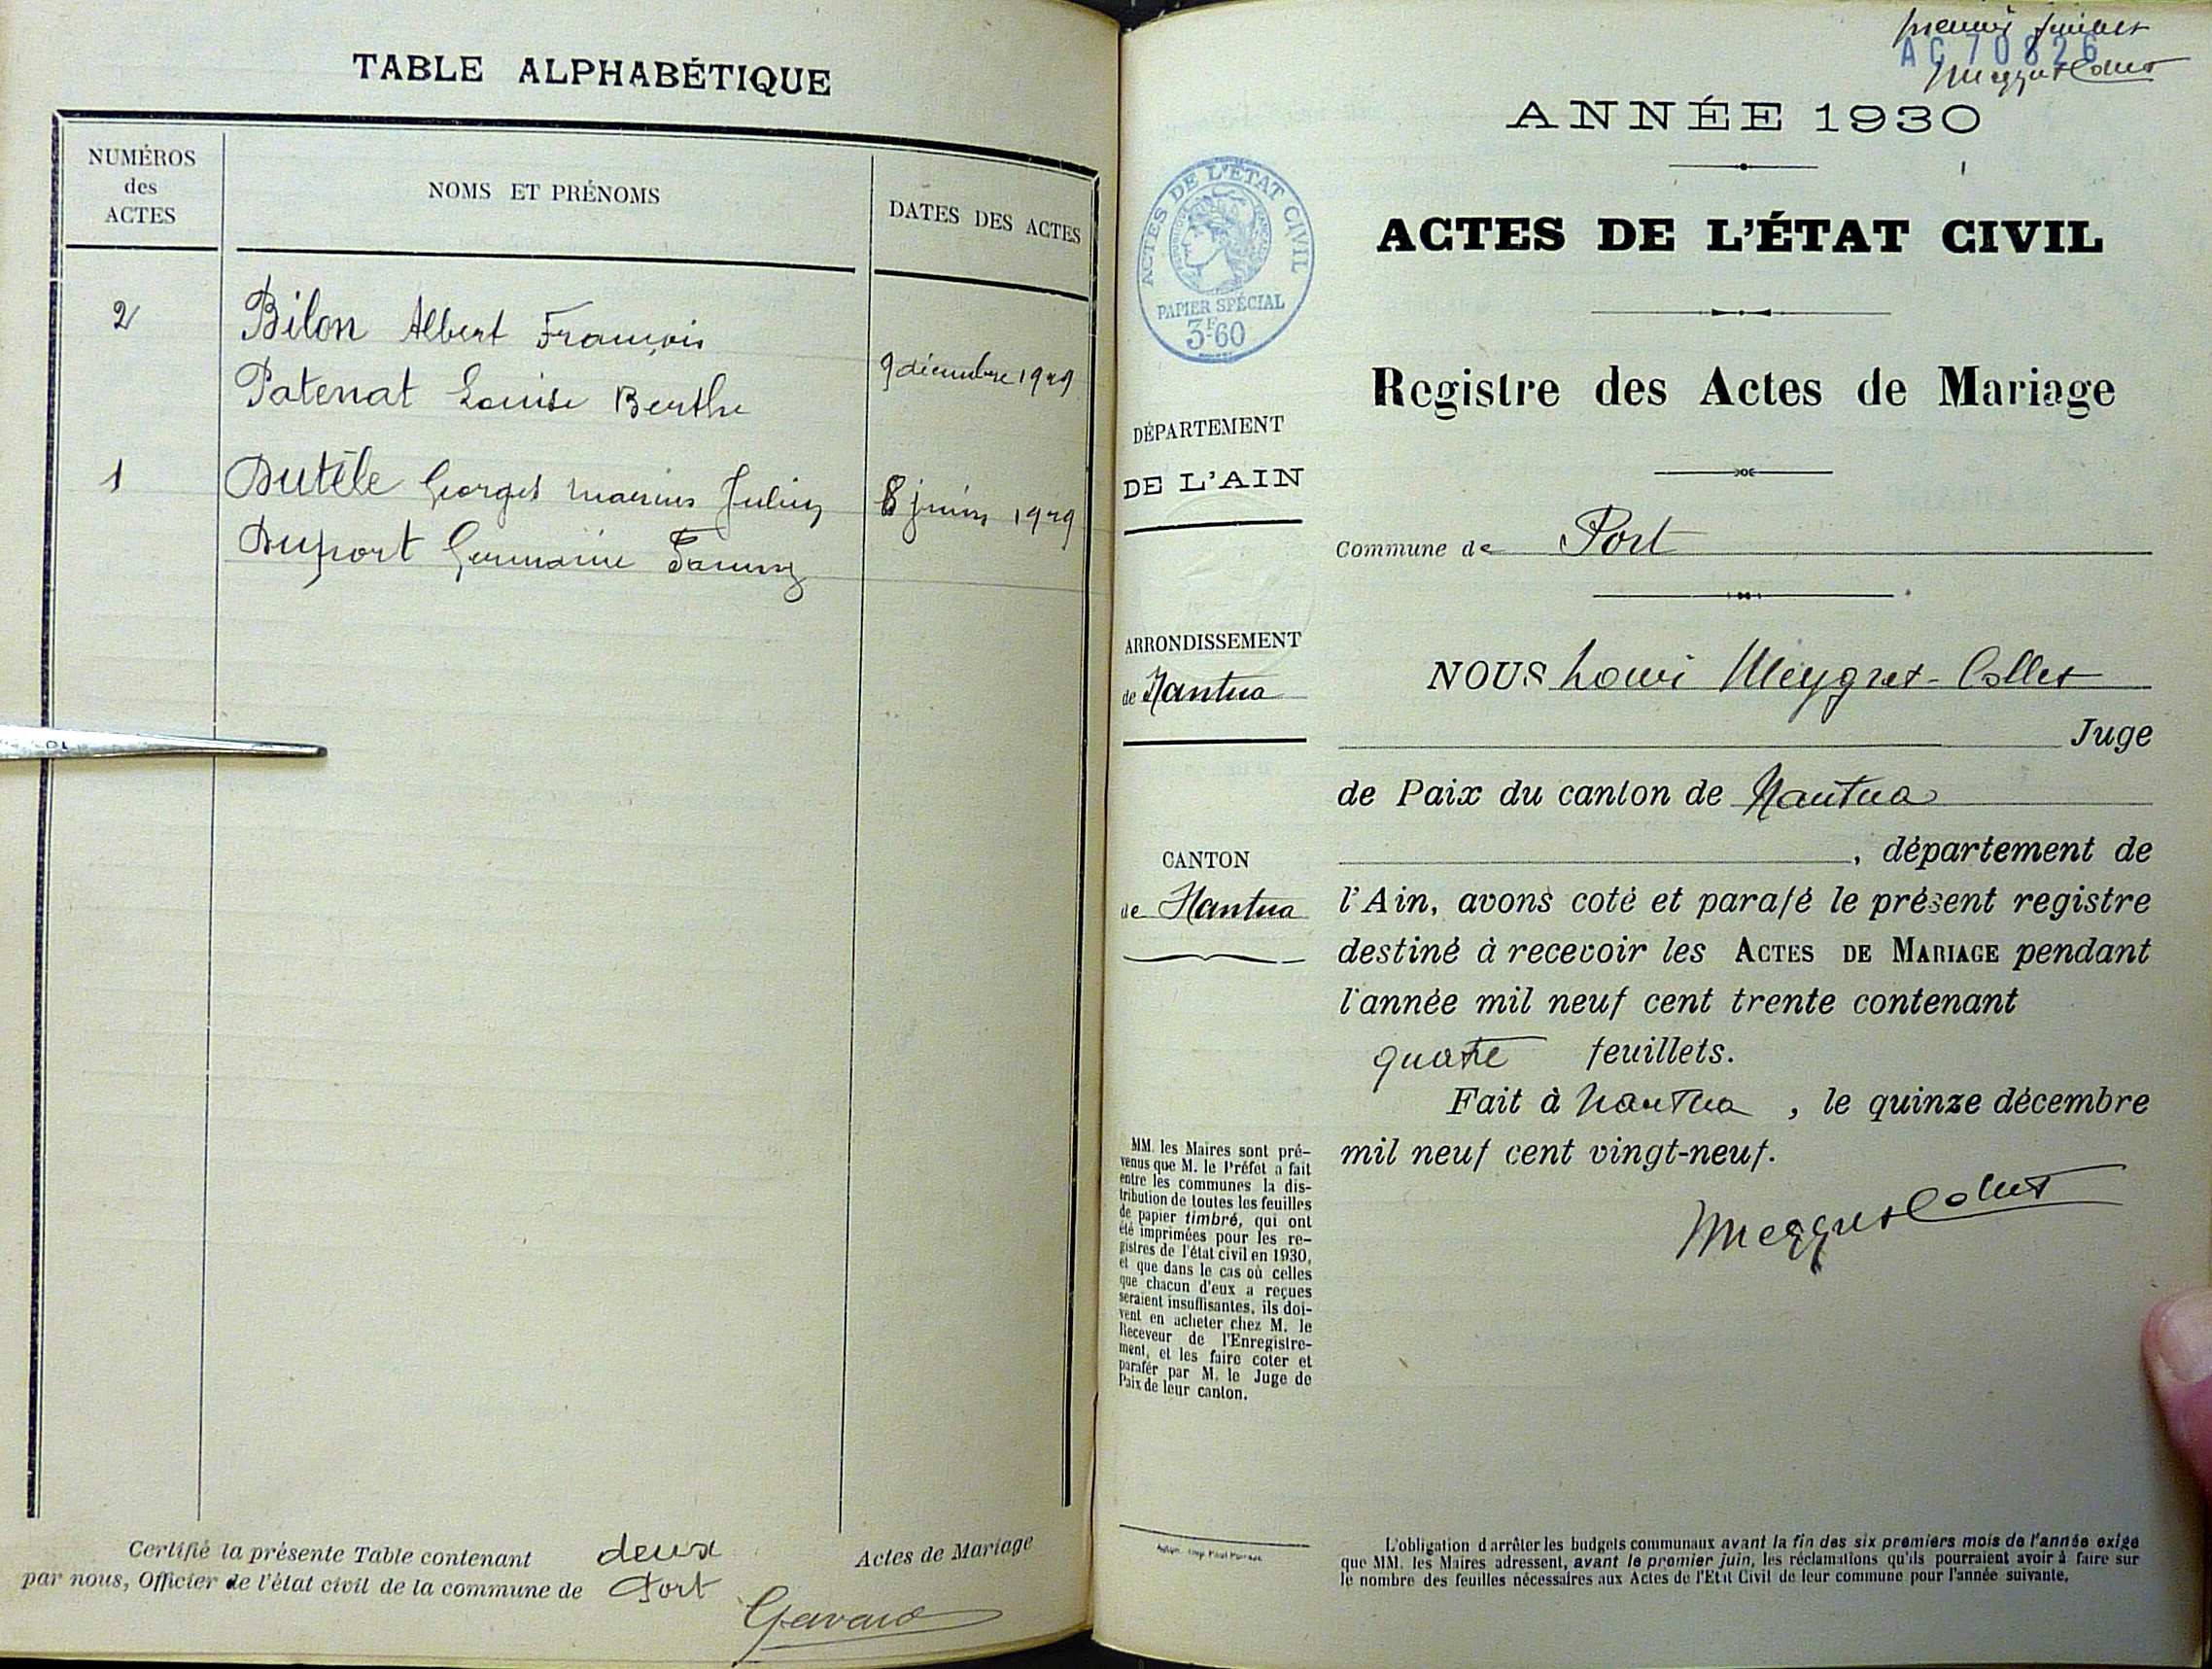 TABLE ALPHABÉTIQUE
NUMÉROS
des
ACTES
NOMS ET PRÉNOMS
DATES DES ACTES
2
Bilon Albert François
Patenat Louise Berthe
9 décembre 1929
1
Dutèle Georges Marius Julien
Duport Germaine Fanny
8 juin 1929
Certifié la présente Table contenant deux Actes de Mariage
par nous, Officier de l'état civil de la commune de Port
Gavard
premier feuillet
AC 70826
Meygret-Collet
ANNÉE 1930
ACTES DE L'ÉTAT CIVIL
PAPIER SPÉCIAL
3F60
ACTES DE L'ÉTAT CIVIL
Registre des Actes de Mariage
DÉPARTEMENT
DE L'AIN
Commune de Port
ARRONDISSEMENT
de Nantua
CANTON
de Nantua
NOUS Louis Meygret-Collet
Juge
de Paix du canton de Nantua
, département de
l'Ain, avons coté et parafé le présent registre
destiné à recevoir les ACTES DE MARIAGE pendant
l'année mil neuf cent trente contenant
quatre feuillets.
Fait à Nantua, le quinze décembre
mil neuf cent vingt-neuf.
Meygret Collet
MM. les Maires sont pré-
venus que M. le Préfet a fait
entre les communes la dis-
tribution de toutes les feuilles
de papier timbré, qui ont
été imprimées pour les re-
gistres de l'état civil en 1930,
et que dans le cas où celles
que chacun d'eux a reçues
seraient insuffisantes, ils doi-
vent en acheter chez M. le
Receveur de l'Enregistre-
ment, et les faire coter et
parafer par M. le Juge de
Paix de leur canton.
L'obligation d'arrêter les budgets communaux avant la fin des six premiers mois de l'année exige
que MM. les Maires adressent, avant le premier juin, les réclamations qu'ils pourraient avoir à faire sur
le nombre des feuilles nécessaires aux Actes de l'Etat Civil de leur commune pour l'année suivante.